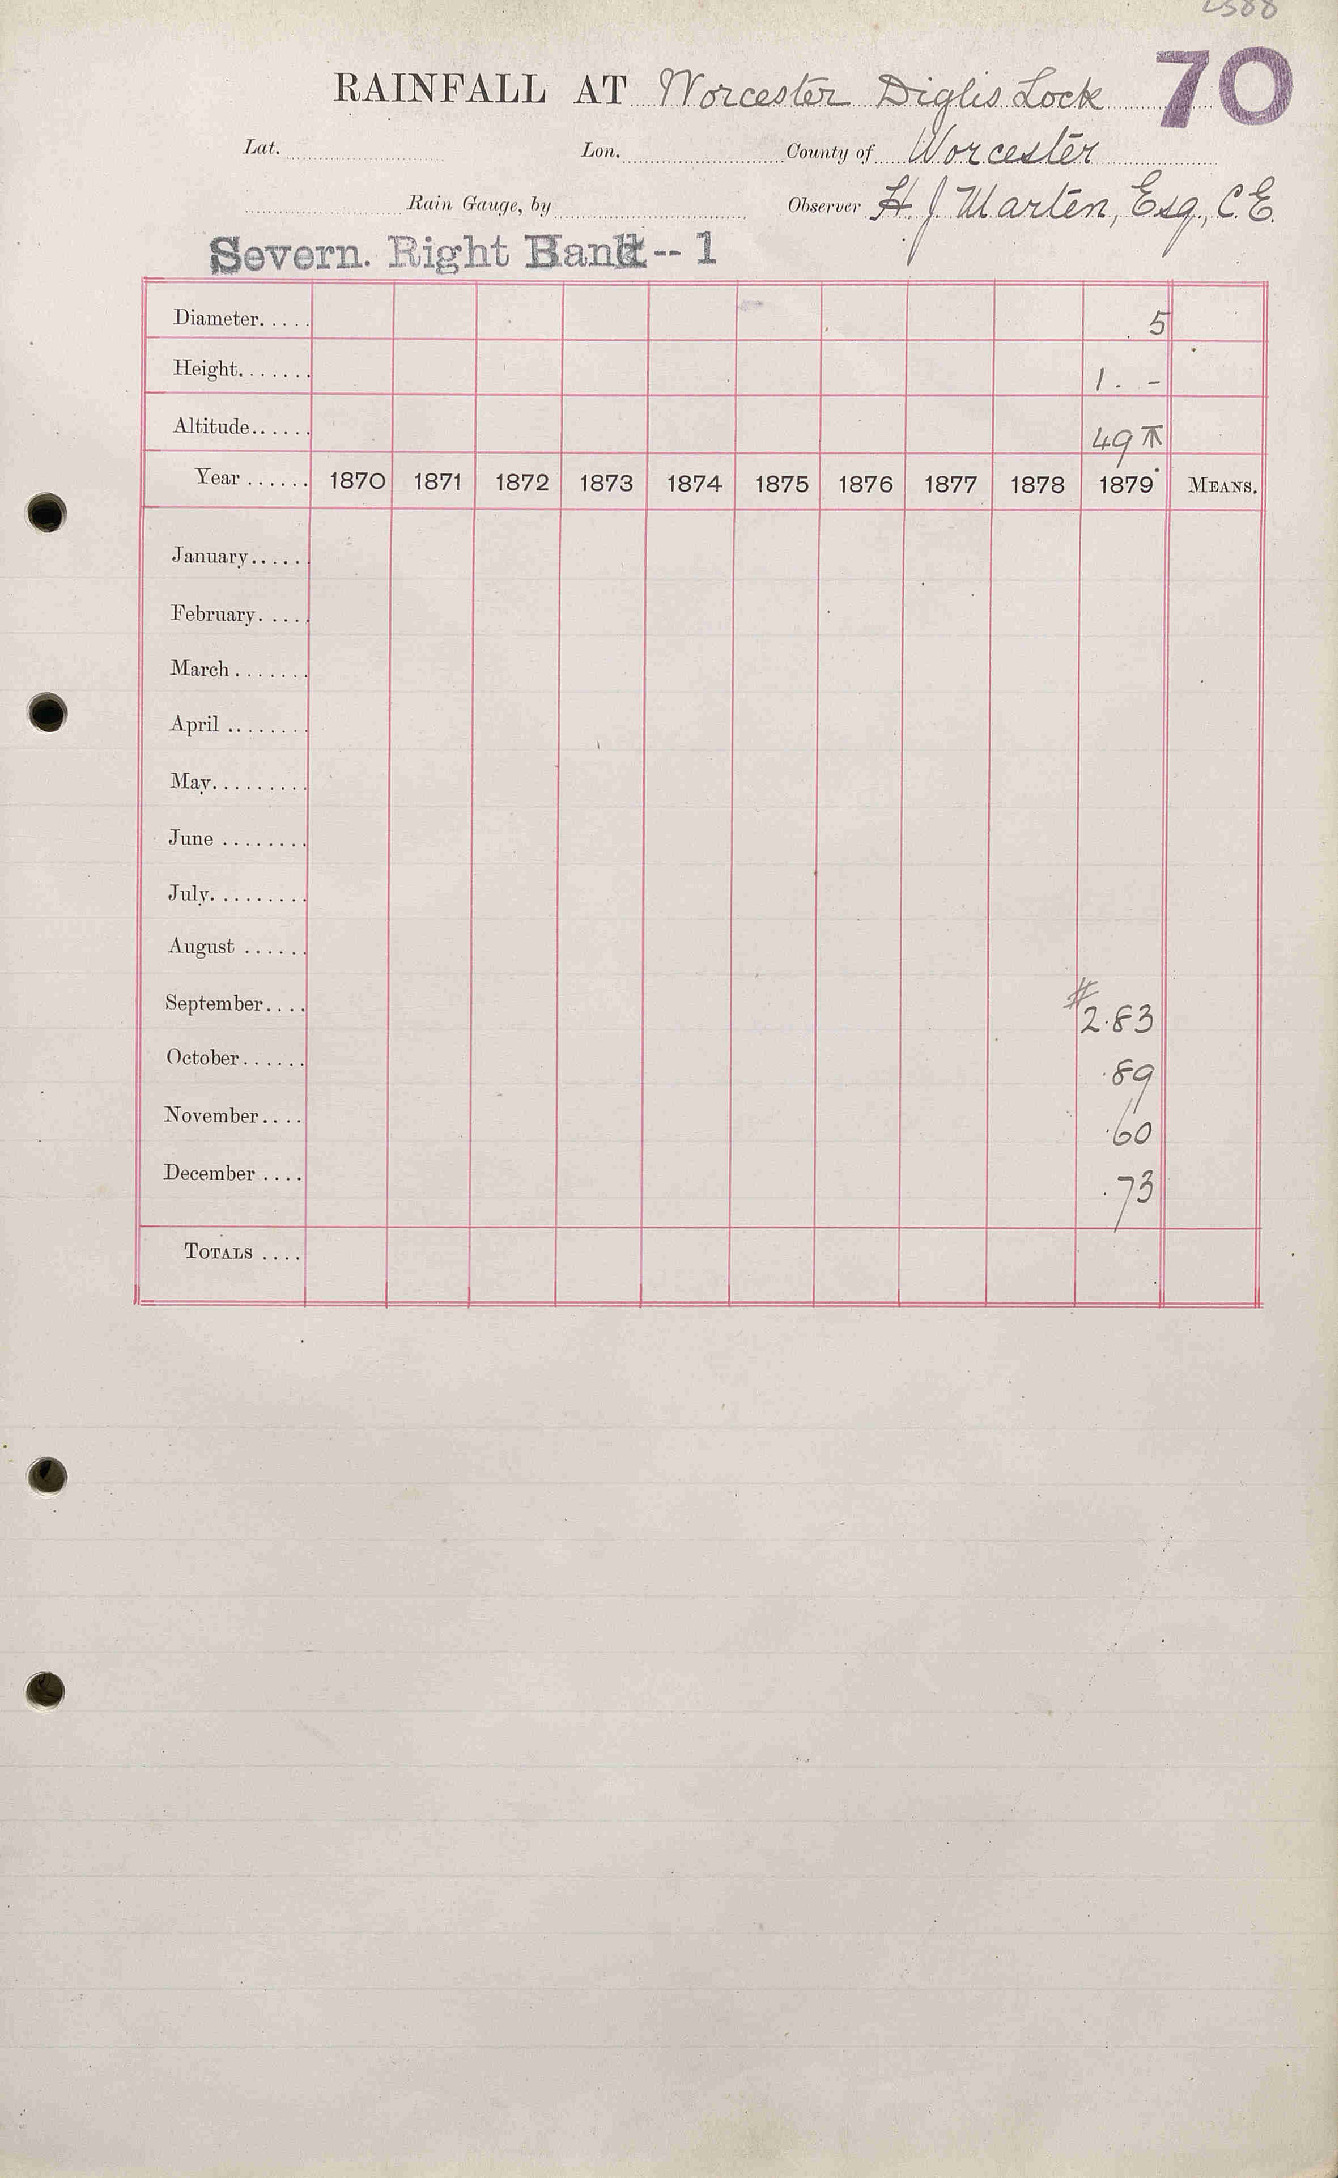 2388
70
RAINFALL AT Worcester Diglis Lock
Lat. Lon. County of Worcester
Rain Gauge, by Observer H. J. Marten, Esq., C.E.
Severn. Right Bank -- 1
Diameter..... 5
Height....... 1. -
Altitude...... 49
Year ...... 1870 1871 1872 1873 1874 1875 1876 1877 1878 1879 MEANS.
January.....
February.....
March .......
April ........
May.........
June ........
July.........
August ......
September.... # 2.83
October...... .89
November.... .60
December .... .73
TOTALS ....